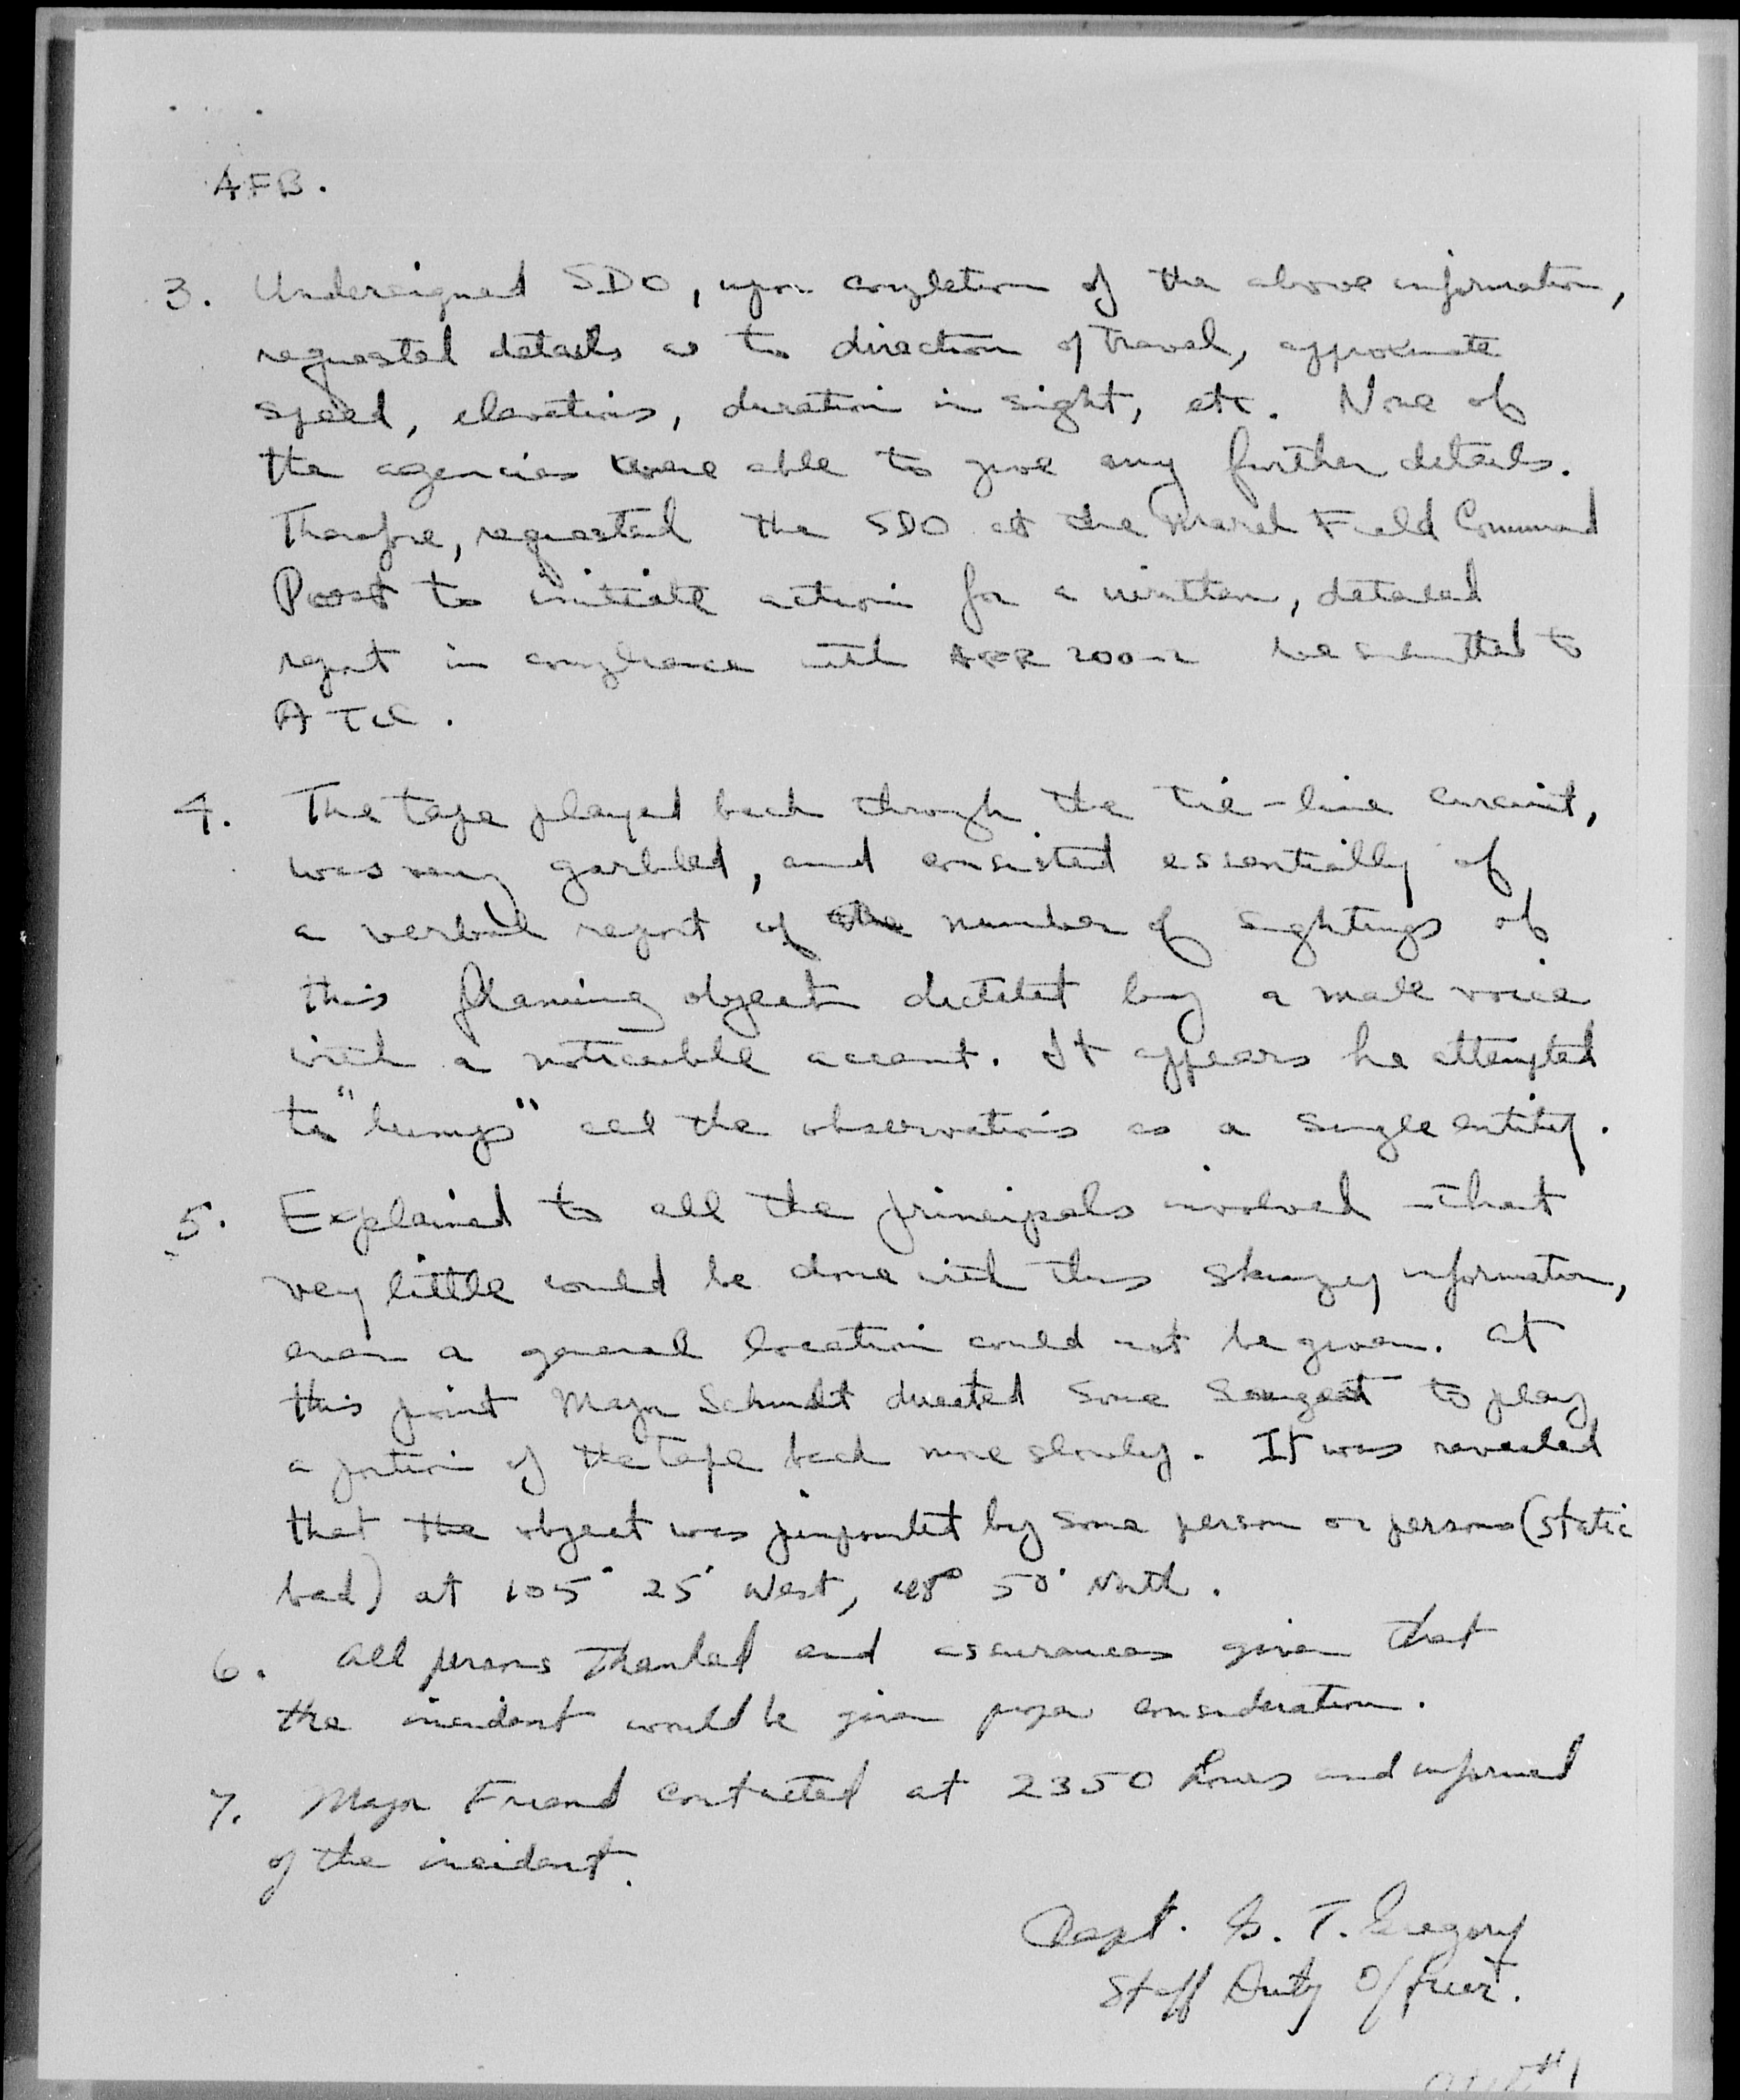 AFB.
3. Undersigned SDO, upon completion of the above information,
requested details as to direction of travel, approximate
speed, elevations, duration in sight, etc. None of
the agencies were able to give any further details.
Therefore, requested the SDO at the March Field Command
Post to initiate action for a written, detailed
report in compliance with AFR 200-2 be submitted to
ATIC.
4. The tape played back through the tie-line circuit,
was very garbled, and consisted essentially of
a verbal report of the number of sightings of
this flaming object dictated by a male voice
with a noticeable accent. It appears he attempted
to "lump" all the observations as a single entity.
5. Explained to all the principals involved that
very little could be done with this skimpy information,
even a general location could not be given. At
this point Major Schmidt directed some Sergeant to play
a portion of the tape back more slowly. It was revealed
that the object was pinpointed by some person or persons (static
bad) at 105° 25' West, 48° 50' North.
6. All persons thanked and assurances given that
the incident would be given proper consideration.
7. Major Friend contacted at 2350 hours and informed
of the incident.
Capt. G. T. Gregory
Staff Duty Officer.
#1